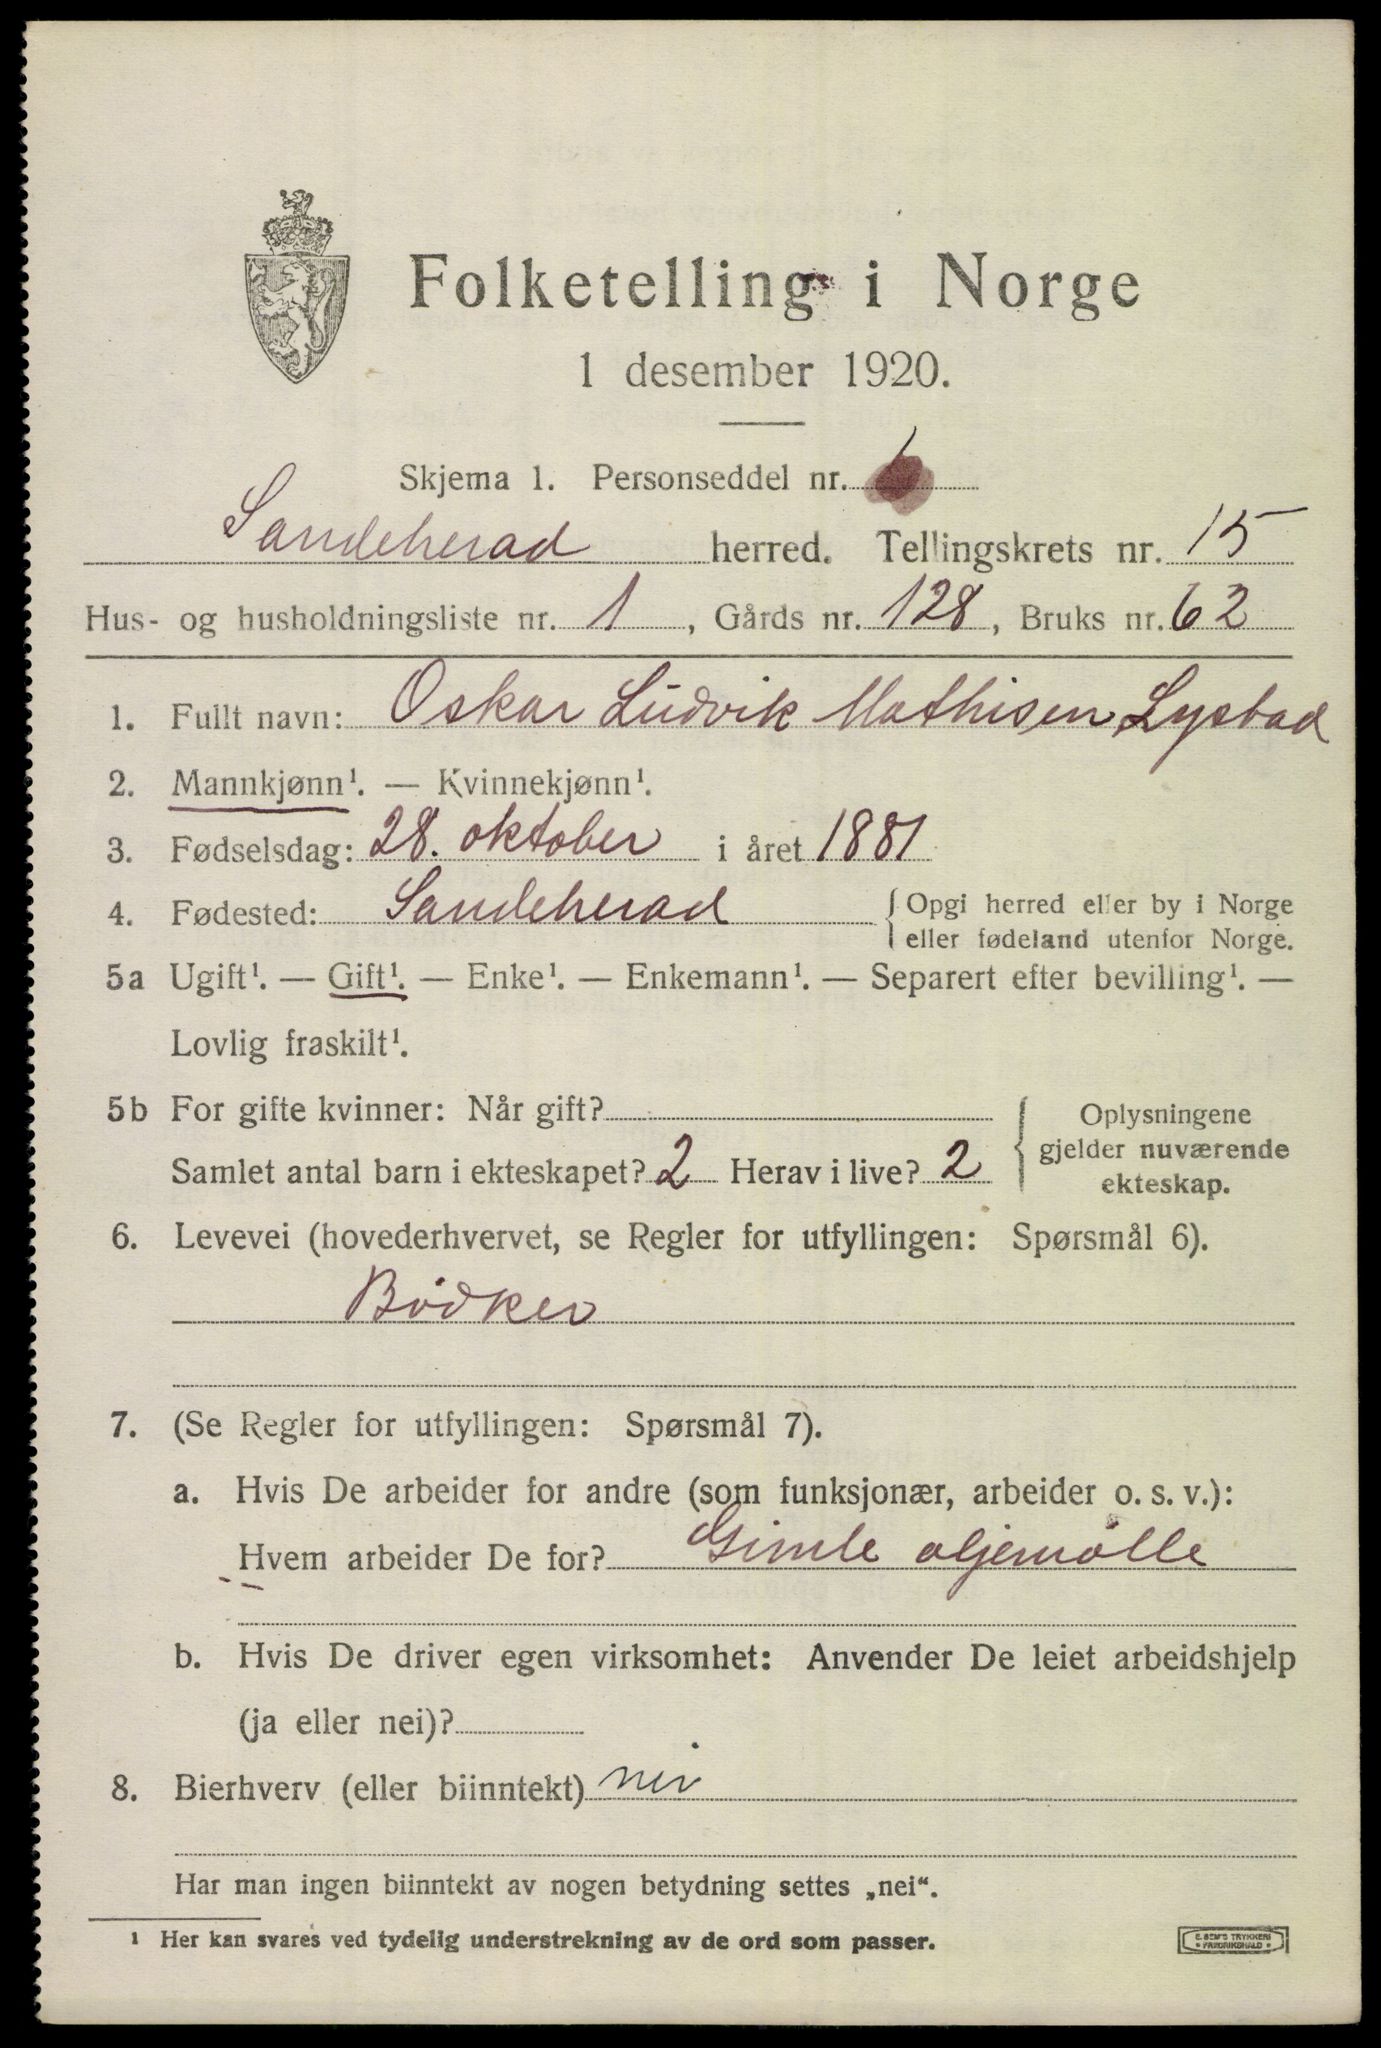 Folketelling i Norge
1 desember 1920.
Skjema 1. Personseddel nr.
Sandeherad herred. Tellingskrets nr. 15
Hus- og husholdningsliste nr. 1, Gårds nr. 128, Bruks nr. 62
1. Fullt navn: Oskar Ludvik Mathisen Lystad
2. Mannkjønn¹. — Kvinnekjønn¹.
3. Fødselsdag: 28. oktober i året 1881
4. Fødested: Sandeherad { Opgi herred eller by i Norge
eller fødeland utenfor Norge.
5a Ugift¹. — Gift¹. — Enke¹. — Enkemann¹. — Separert efter bevilling¹. —
Lovlig fraskilt¹.
5b For gifte kvinner: Når gift?
Samlet antal barn i ekteskapet? 2 Herav i live? 2
{ Oplysningene
gjelder nuværende
ekteskap.
6. Levevei (hovederhvervet, se Regler for utfyllingen: Spørsmål 6).
Bödker
7. (Se Regler for utfyllingen: Spørsmål 7).
a. Hvis De arbeider for andre (som funksjonær, arbeider o. s. v.):
Hvem arbeider De for? Gimle oljemölle
b. Hvis De driver egen virksomhet: Anvender De leiet arbeidshjelp
(ja eller nei)?
8. Bierhverv (eller biinntekt) nei
Har man ingen biinntekt av nogen betydning settes „nei“.
¹ Her kan svares ved tydelig understrekning av de ord som passer.
E. SEM'S TRYKKERI
• FREDRIKSHALD •